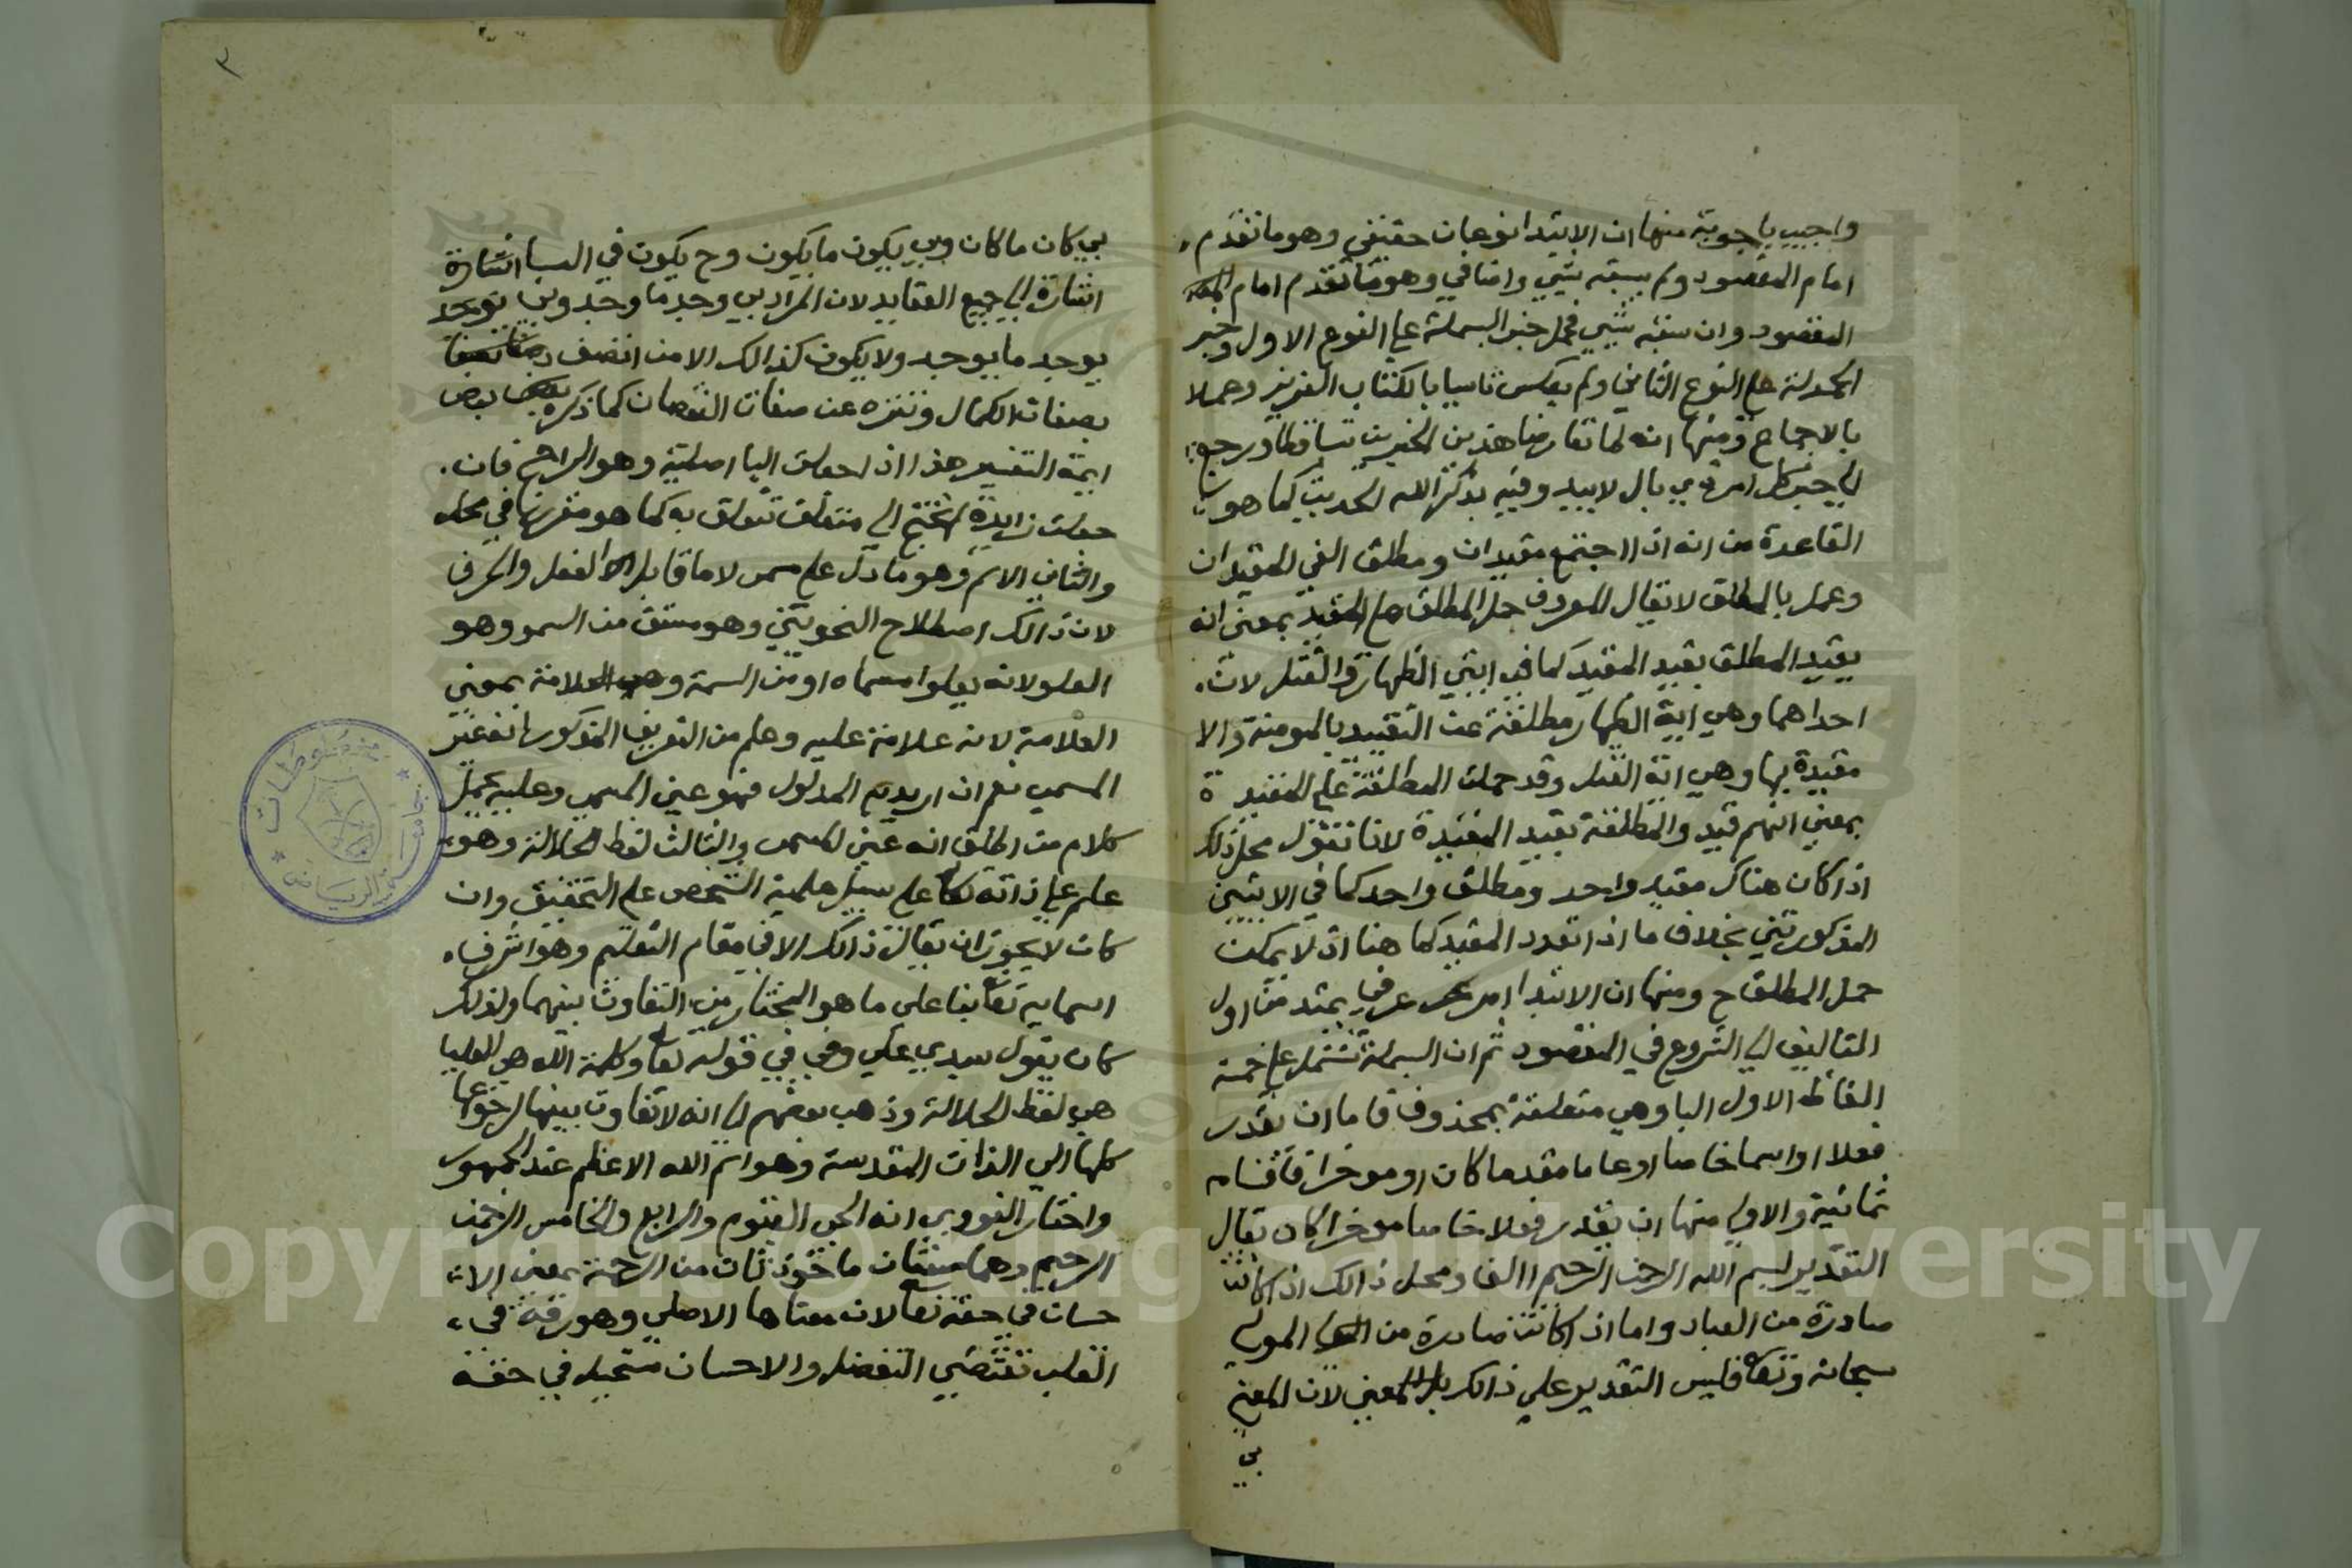 واجيب باجوبة منها ان الابتدا نوعان حقيقي وهو ما تقدم
امام المقصود ولم يسبقه شي واضافي وهو ما تقدم امام
المقصود وان سبقه شي فحمل خبر البسملة علي النوع الاول وخبر
الحمدلة علي النوع الثاني ولم يعكس تاسيا بالكتاب العزيز وعملا
بالاجماع ومنها انه لما تعارضا هذين الخبرين تساقطا ورجع
الي خبر كل امر ذي بال لا يبدو فيه بذكر الله الحديث كما هو
القاعدة من انه اذا اجتمع مقيدان ومطلق الغي المقيدان
وعمل بالمطلق لا يقال المعروف حمل المطلق علي المقيد بمعني انه
يقيد المطلق بقيد المقيد كما في ايتي الظهار والقتل لان
احداهما وهي اية الظهار مطلقة عن التقييد بالمومنة والا
مقيدة بها وهي اية القتل وقد حملت المطلقة علي المقيدة
بمعني انهم قيدوا المطلقة بقيد المقيدة لانا نقول محل ذلك
اذا كان هناك مقيد واحد ومطلق واحد كما في الايتين
المذكورتين بخلاف ما اذا تعدد المقيد كما هنا اذ لا يمكن
حمل المطلق ح ومنها ان الابتدا امر عرفي يمتد من اول
التاليف الي الشروع في المقصود ثم ان البسملة تشتمل علي خمسة
الفاظ الاول البا وهي متعلقة بمحذوف فاما ان يقدر
فعلا او اسما خاصا او عاما مقدما كان او موخرا فاقسام
ثمانية والاولي منها ان يقدر فعلا خاصا موخرا كان يقال
التقدير بسم الله الرحمن الرحيم االف ومحل ذالك اذا كانت
صادرة من العباد واما اذا كانت صادرة من المولي
سبحانه وتعا فليس التقدير علي ذالك بل المعني لان المعني
بي
٣
بي كان ما كان وبي يكون ما يكون وح يكون في البا اشارة
اشارة الي جميع العقايد لان المراد بي وجد ما وجد وبي
يوجد ما يوجد ولا يكون كذالك الا من اتصف
بصفات الكمال وتنزه عن صفات النقصان كما ذكره بعض
ايمة التفسير هذا اذا جعلت البا اصلية وهو الراجح فان
جعلت زايدة لم تحتج الي متعلق تتعلق به كما هو مقرر في محله
والثاني الاسم وهو ما دل علي مسمي لا ما قابل الفعل والحرف
لان ذالك اصطلاح النحويين وهو مشتق من السمو وهو
العلو لانه يعلوا مسماه او من السمة وهي العلامة بمعني
العلامة لانه علامة عليه وعلم من التعريف المذكور انه غير
المسمي نعم ان اريد به المدلول فهو عين المسمي وعليه يحمل
كلام من اطلق انه عين المسمي والثالث لفظ الجلالة وهو
علم علي ذاته تعا علي سبيل علمية الشخص علي التحقيق وان
كان لا يجوز ان يقال ذالك الا في مقام التعليم وهو اشرف
اسمايه تعا بنا علي ما هو المختار من التفاوت بينهما ولذلك
كان يقول سيدي علي وفي في قوله تعا وكلمة الله هي العليا
هي لفظ الجلالة وذهب بعضهم الي انه لا تفاوت بينها لرجوعها
كلها الي الذات المقدسة وهو اسم الله الاعظم عند الجمهور
واختار النووي انه الحي القيوم والرابع والخامس الرحمن
الرحيم وهما صفتان ماخوذتان من الرحمة بمعني الا
حسان في حقه تعا لان معناها الاصلي وهو رقة في
القلب تقتضي التفضل والاحسان مستحيل في حقه
Copyright © King Saud University